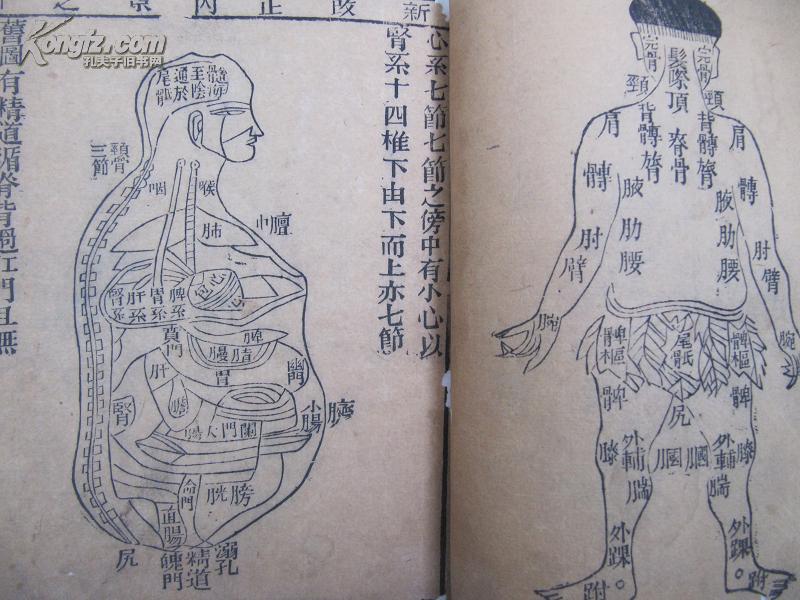 新
改
正
內
景
之
心系七節七節之傍中有小心以
腎系十四椎下由下而上亦七節
舊圖有精道循脊背過肛門且無
髓海
至陰
通於
尾骶
頸骨
三節
咽
喉
肺
膻
中
心
包
脾系
胃系
肝系
腎系
賁門
脾
膜脂
胃
肝
膽
腎
幽
闌門
大腸
小腸
臍
膀
胱
命門
直腸
溺孔
精道
魄門
尻
髮際
頂
脊骨
完骨
完骨
頸
頸
背膊膂
背膊膂
肩
肩
髆
髆
腋
肋
腰
腋
肋
腰
肘
臂
肘
臂
腕
腕
髀樞
尾骶
髀樞
小尻
髀
髀
膝
外輔
膕
膕
外輔
膝
腨
腨
外踝
外踝
跗
跗
kongfz.com
孔夫子旧书网